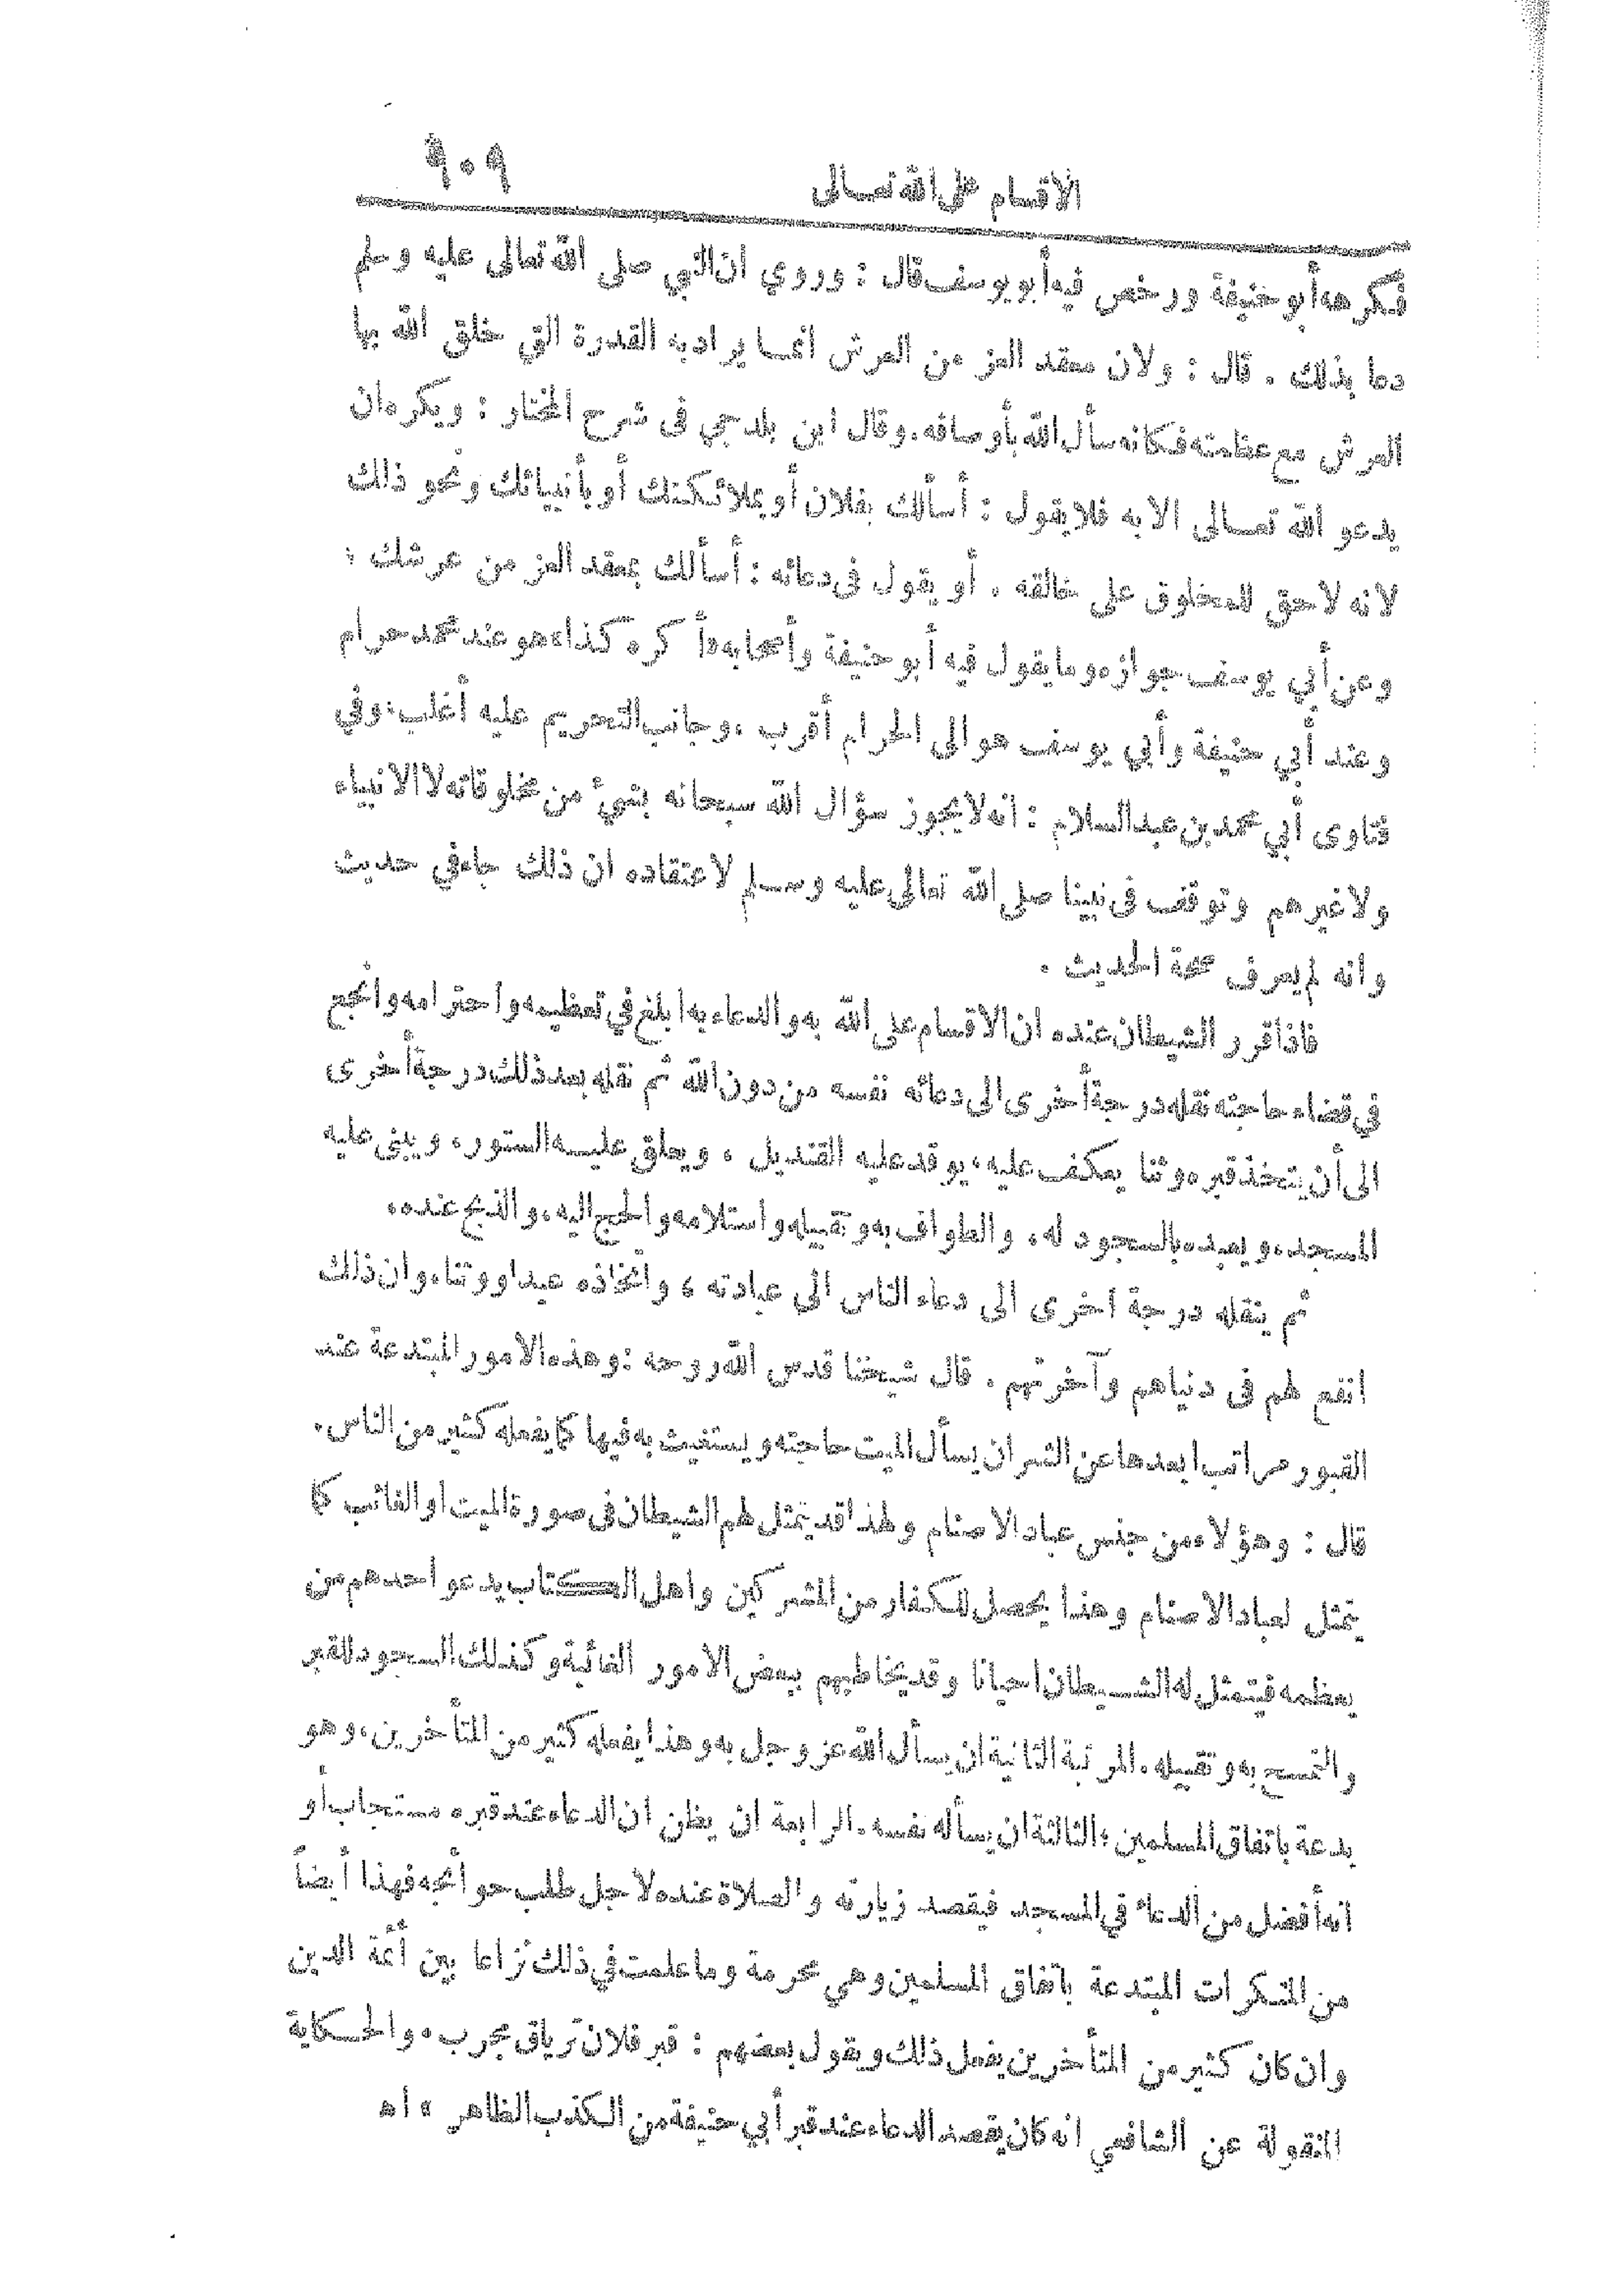 الاقسام على الله تعالى ٩٠٩
فكرهه أبو حنيفة ورخص فيه أبو يوسف قال : وروي ان النبي صلى الله تعالى عليه وسلم
دعا بذلك . قال : ولان معقد العز من العرش انما يراد به القدرة التي خلق الله بها
العرش مع عظمته فكانه سأل الله بأوصافه . وقال ابن بلدجي فى شرح المختار : ويكره ان
يدعو الله تعالى الا به فلا يقول : أسألك بفلان أو بملائكتك أو بأنبيائك ونحو ذلك
لانه لا حق للمخلوق على خالقه . أو يقول فى دعائه : أسألك بمعقد العز من عرشك ؛
وعن أبي يوسف جوازه وما يقول فيه أبو حنيفة وأصحابه أكره كذا ، هو عند محمد حرام
وعند أبي حنيفة وأبي يوسف هو الى الحرام أقرب ، وجانب التحريم عليه أغلب ، وفي
فتاوى أبي محمد بن عبد السلام : انه لا يجوز سؤال الله سبحانه بشيء من مخلوقاته لا الانبياء
ولا غيرهم وتوقف فى نبينا صلى الله تعالى عليه وسلم لاعتقاده ان ذلك جاء في حديث
وانه لم يعرف صحة الحديث .
فاذا قرر الشيطان عنده ان الاقسام على الله به والدعاء به ابلغ في تعظيمه واحترامه وانجع
في قضاء حاجته نقله درجة أخرى الى دعائه نفسه من دون الله ثم نقله بعد ذلك درجة أخرى
الى أن يتخذ قبره وثنا يعكف عليه ، يوقد عليه القنديل ، ويعلق عليه الستور ، ويبنى عليه
المسجد ، ويعبده بالسجود له ، والطواف به وتقبيله واستلامه والحج اليه ، والذبح عنده ،
ثم ينقله درجة اخرى الى دعاء الناس الى عبادته ، واتخاذه عيدا ووثنا ، وان ذلك
انفع لهم فى دنياهم وآخرتهم . قال شيخنا قدس الله روحه : وهذه الامور المبتدعة عند
القبور مراتب ابعدها عن الشرع ان يسأل الميت حاجته ويستغيث به فيها كما يفعله كثير من الناس .
قال : وهؤلاء من جنس عباد الاصنام ولهذا قد يتمثل لهم الشيطان فى صورة الميت او الغائب كما
يتمثل لعباد الاصنام وهذا يحصل للكفار من المشركين واهل الكتاب يدعو احدهم من
يعظمه فيتمثل له الشيطان احيانا وقد يخاطبهم ببعض الامور الغائبة وكذلك السجود للقبر
والتمسح به وتقبيله . المرتبة الثانية ان يسأل الله عز وجل به وهذا يفعله كثير من المتأخرين ، وهو
بدعة باتفاق المسلمين ؛ الثالثة ان يسأله نفسه . الرابعة ان يظن ان الدعاء عند قبره مستجاب أو
انه أفضل من الدعاء في المسجد فيقصد زيارته والصلاة عنده لاجل طلب حوائجه فهذا أيضاً
من المنكرات المبتدعة باتفاق المسلمين وهي محرمة وما علمت في ذلك نزاعا بين أئمة الدين
وان كان كثير من المتأخرين يفعل ذلك ويقول بعضهم : قبر فلان ترياق مجرب . والحكاية
المنقولة عن الشافعي انه كان يقصد الدعاء عند قبر أبي حنيفة من الكذب الظاهر . اه